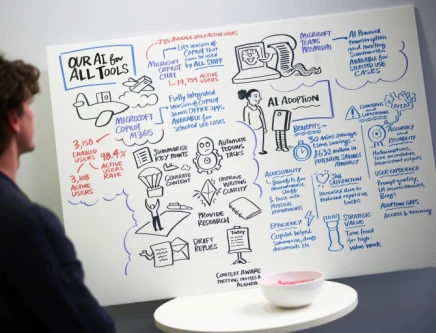 OUR AI for
ALL TOOLS
~735 AVERAGE DAILY ACTIVE USERS
MICROSOFT
COPILOT
CHAT
Lite version of
Copilot that
can be used
by ALL STAFF
14,739 ACTIVE
USERS
MICROSOFT
TEAMS
PREMIUM
AI Powered
transcription
and meeting
Summaries
AVAILABLE for
SELECTED USE
CASES
MICROSOFT
COPILOT
M365
Fully Integrated
version of Copilot
across Office apps
AVAILABLE for
selected use cases
3,158
ENABLED
USERS
98.4%
ACTIVE
USERS
RATE
3,108
ACTIVE
USERS
SUMMARISE
KEY POINTS
AUTOMATE
TEDIOUS
TASKS
GENERATE
CONTENT
IMPROVE
WRITING
CLARITY
PROVIDE
RESEARCH
DRAFT
REPLIES
Today
CONTEXT AWARE
MEETING INVITES &
AGENDA
AI ADOPTION
BENEFITS
30 mins average
time savings
POTENTIAL
ANNUAL
SAVINGS
ACCESSIBILITY
Benefits for
& those with
PHYSICAL
IMPAIRMENTS
JOB
SATISFACTION
due to
Reduced
repetitive
tasks
EFFICIENCY
Copilot helped
Summarise, draft
documents etc
STRATEGIC
VALUE
Time freed for
high
value work
ACCURACY
RELIABILITY
USER EXPERIENCE
ADOPTION GAPS
Access & training